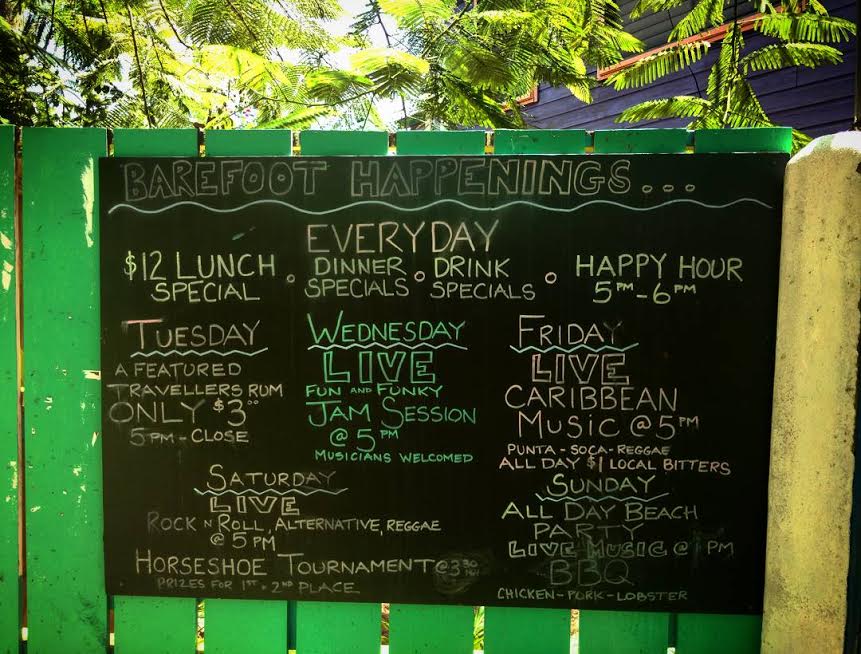 BAREFOOT HAPPENINGS...
EVERYDAY
$12 LUNCH SPECIAL
DINNER SPECIALS
DRINK SPECIALS
HAPPY HOUR
5PM-6PM
TUESDAY
A FEATURED
TRAVELLERS RUM
ONLY $3.00
5PM-CLOSE
WEDNESDAY
LIVE
FUN AND FUNKY
JAM SESSION
@ 5PM
MUSICIANS WELCOMED
FRIDAY
LIVE
CARIBBEAN
MUSIC @ 5PM
PUNTA-SOCA-REGGAE
ALL DAY $1 LOCAL BITTERS
SATURDAY
LIVE
ROCK N ROLL, ALTERNATIVE, REGGAE
@ 5PM
HORSESHOE TOURNAMENT @ 3:30
PRIZES FOR 1ST + 2ND PLACE
SUNDAY
ALL DAY BEACH
PARTY
LIVE MUSIC @ 1PM
BBQ
CHICKEN-PORK-LOBSTER